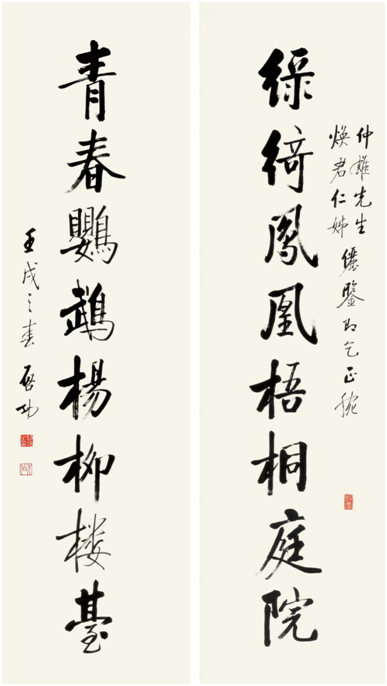 仲雄先生
煥君仁姊
儷鑒即乞正腕
綠綺鳳凰梧桐庭院
青春鸚鵡楊柳楼臺
壬戌之春啟功